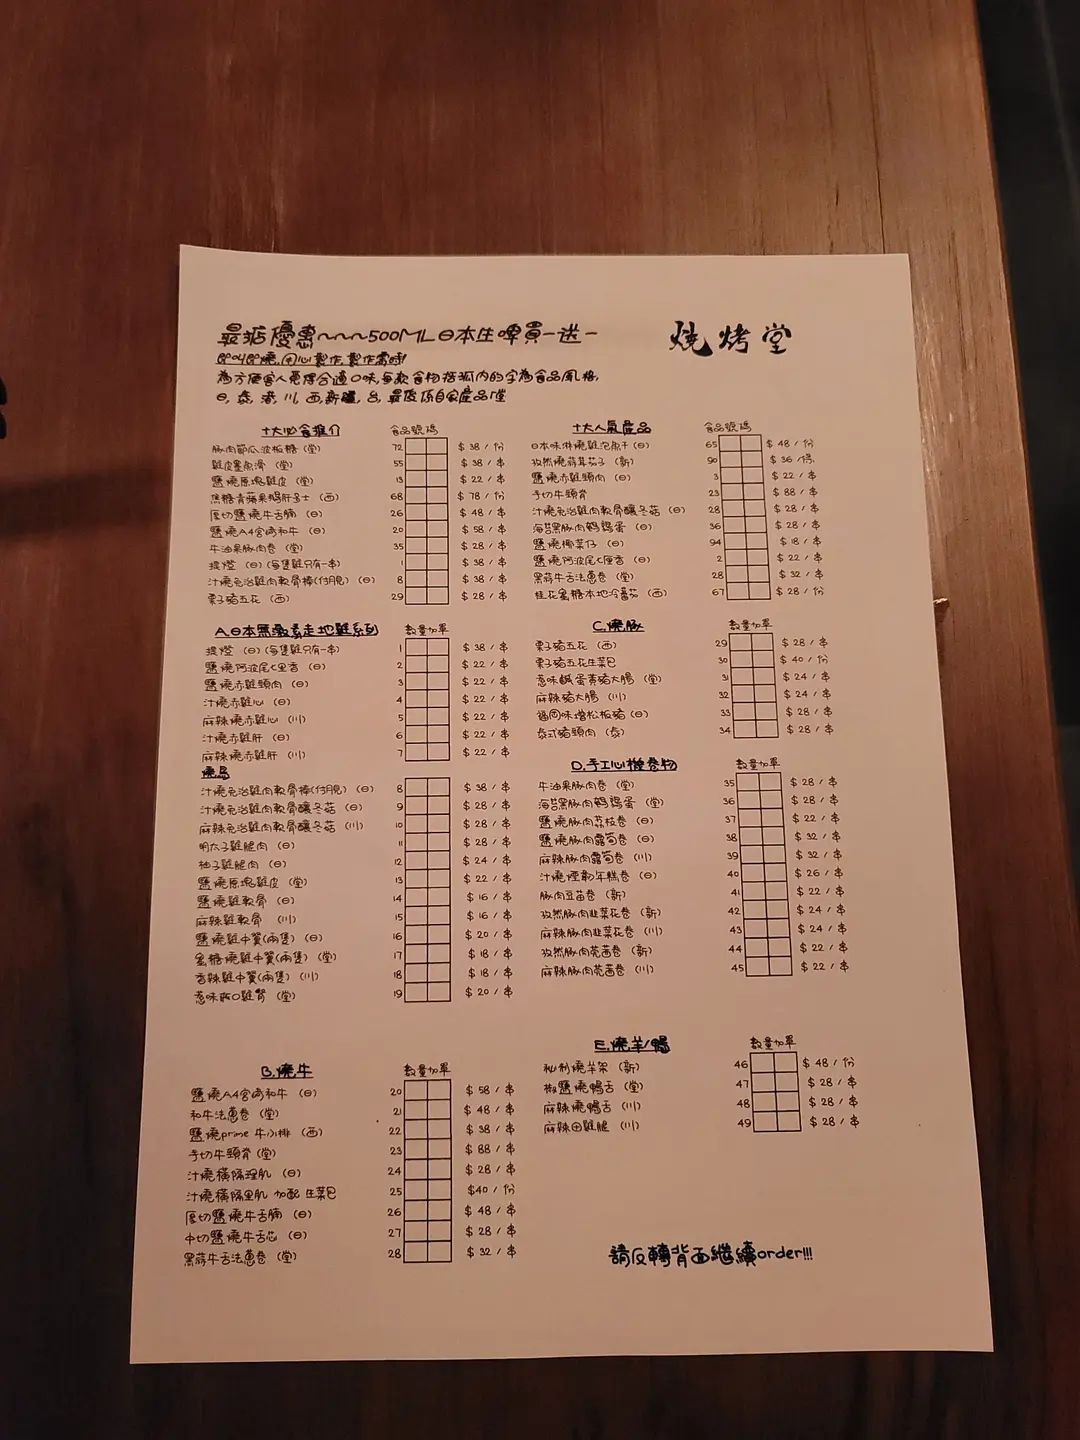 最抵優惠~~~500ML日本生啤買一送一
燒烤堂
即叫即燒,用心製作,製作需時!
為方便客人覓得合適口味,每款食物括弧內的字為食品風格,
日, 泰, 港, 川, 西, 新疆, 台, 最後係自家產品「堂
十大必食推介 食品號碼
豚肉節瓜波板糖 (堂) 72 $ 38 / 份
雞皮墨魚滑 (堂) 55 $ 38 / 串
鹽燒原塊雞皮 (堂) 13 $ 22 / 串
焦糖青蘋果鵝肝多士 (西) 68 $ 78 / 份
厚切鹽燒牛舌腩 (日) 26 $ 48 / 串
鹽燒A4宮崎和牛 (日) 20 $ 58 / 串
牛油果豚肉卷 (堂) 35 $ 28 / 串
提燈 (日) (每隻雞只有一串) 1 $ 38 / 串
汁燒免治雞肉軟骨棒(付月見) (日) 8 $ 38 / 串
栗子豬五花 (西) 29 $ 28 / 串
十大人氣產品 食品號碼
日本味淋燒雞泡魚干 (日) 65 $ 48 / 份
孜然燒蒜茸茄子 (新) 90 $ 36 / 份
鹽燒赤雞頸肉 (日) 3 $ 22 / 串
手切牛頸脊 23 $ 88 / 串
汁燒免治雞肉軟骨釀冬菇 (日) 28 $ 28 / 串
海苔黑豚肉鵪鶉蛋 (日) 36 $ 28 / 串
鹽燒椰菜仔 (日) 94 $ 18 / 串
鹽燒阿波尾七里香 (日) 2 $ 22 / 串
黑蒜牛舌法蔥卷 (堂) 28 $ 32 / 串
桂花蜜糖本地冷番茄 (西) 67 $ 28 / 份
A.日本無激素走地雞系列 數量加單
提燈 (日) (每隻雞只有一串) 1 $ 38 / 串
鹽燒阿波尾七里香 (日) 2 $ 22 / 串
鹽燒赤雞頸肉 (日) 3 $ 22 / 串
汁燒赤雞心 (日) 4 $ 22 / 串
麻辣燒赤雞心 (川) 5 $ 22 / 串
汁燒赤雞肝 (日) 6 $ 22 / 串
麻辣燒赤雞肝 (川) 7 $ 22 / 串
燒鳥
汁燒免治雞肉軟骨棒(付月見) (日) 8 $ 38 / 串
汁燒免治雞肉軟骨釀冬菇 (日) 9 $ 28 / 串
麻辣免治雞肉軟骨釀冬菇 (川) 10 $ 28 / 串
明太子雞腿肉 (日) 11 $ 28 / 串
柚子雞腿肉 (日) 12 $ 24 / 串
鹽燒原塊雞皮 (堂) 13 $ 22 / 串
鹽燒雞軟骨 (日) 14 $ 16 / 串
麻辣雞軟骨 (川) 15 $ 16 / 串
鹽燒雞中翼(兩隻) (日) 16 $ 20 / 串
蜜糖燒雞中翼(兩隻) (堂) 17 $ 18 / 串
香辣雞中翼(兩隻) (川) 18 $ 18 / 串
惹味敲口雞腎 (堂) 19 $ 20 / 串
B.燒牛 數量加單
鹽燒A4宮崎和牛 (日) 20 $ 58 / 串
和牛法蔥卷 (堂) 21 $ 48 / 串
鹽燒prime 牛小排 (西) 22 $ 38 / 串
手切牛頸脊 (堂) 23 $ 88 / 串
汁燒橫隔裡肌 (日) 24 $ 28 / 串
汁燒橫隔里肌 加配 生菜包 25 $40 / 份
厚切鹽燒牛舌腩 (日) 26 $ 48 / 串
中切鹽燒牛舌芯 (日) 27 $ 28 / 串
黑蒜牛舌法蔥卷 (堂) 28 $ 32 / 串
C.燒豚 數量加單
栗子豬五花 (西) 29 $ 28 / 串
栗子豬五花生菜包 30 $ 40 / 份
惹味鹹蛋黃豬大腸 (堂) 31 $ 24 / 串
麻辣豬大腸 (川) 32 $ 24 / 串
福岡味噌松板豬 (日) 33 $ 28 / 串
泰式豬頸肉 (泰) 34 $ 28 / 串
D.手工心機卷物 數量加單
牛油果豚肉卷 (堂) 35 $ 28 / 串
海苔黑豚肉鵪鶉蛋 (堂) 36 $ 28 / 串
鹽燒豚肉荔枝卷 (日) 37 $ 22 / 串
鹽燒豚肉露筍卷 (日) 38 $ 32 / 串
麻辣豚肉露筍卷 (川) 39 $ 32 / 串
汁燒煙韌年糕卷 (日) 40 $ 26 / 串
豚肉豆苗卷 (新) 41 $ 22 / 串
孜然豚肉韭菜花卷 (新) 42 $ 24 / 串
麻辣豚肉韭菜花卷 (川) 43 $ 24 / 串
孜然豚肉芫茜卷 (新) 44 $ 22 / 串
麻辣豚肉芫茜卷 (川) 45 $ 22 / 串
E.燒羊/鴨 數量加單
秘制燒羊架 (新) 46 $ 48 / 份
椒鹽燒鴨舌 (堂) 47 $ 28 / 串
麻辣燒鴨舌 (川) 48 $ 28 / 串
麻辣田雞腿 (川) 49 $ 28 / 串
請反轉背面繼續order!!!